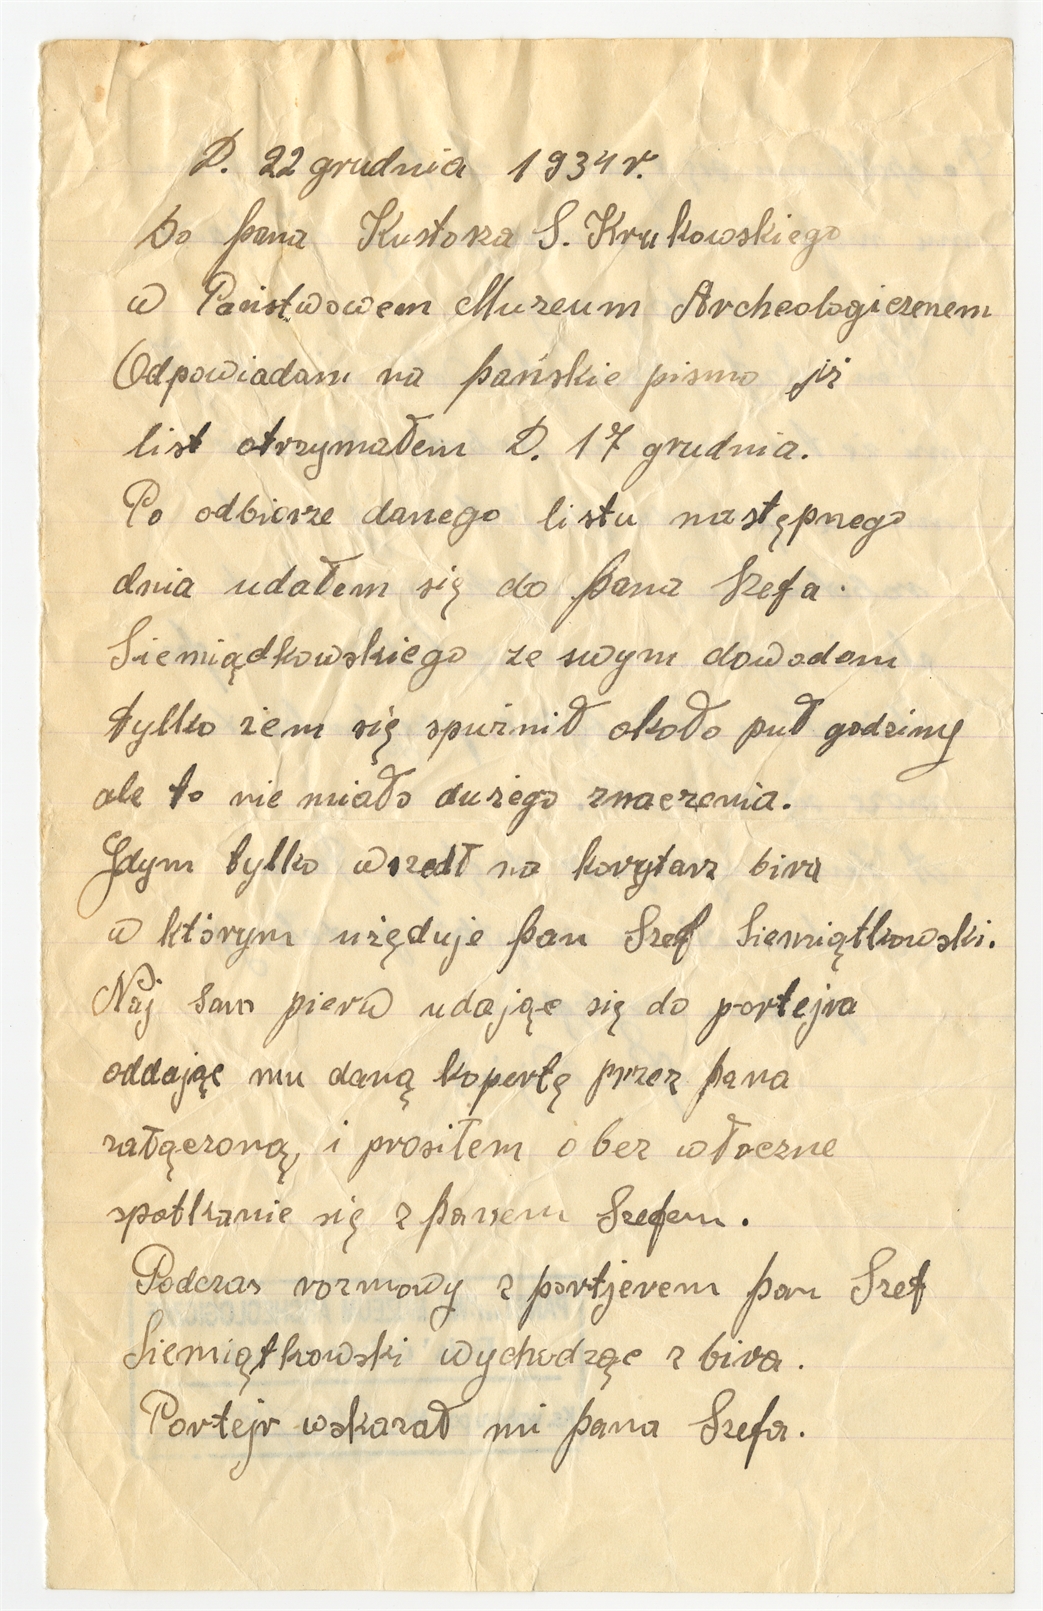 D. 22 grudnia 1934 r.
Do pana Kustosza S. Krukowskiego
w Państwowem Muzeum Archeologicznem
Odpowiadam na pańskie pismo jiż
list otrzymałem D. 17 grudnia.
Po odbiorze danego listu następnego
dnia udałem się do pana Szefa.
Siemiądkowskiego ze swym dowodem
tylko żem się spuźnił około puł godziny
ale to nie miało dużego znaczenia.
Gdym tylko wszedł na korytarz bira
w którym użęduje pan Szef Siemiątkowski.
Naj sam pierw udając się do portejra
oddając mu daną kopertę przez pana
załączoną, i prosiłem o bez włoczne
spotkanie się z panem Szefem.
Podczas rozmowy z portjerem pan Szef
Siemiątkowski wychodząc z bira.
Portejr wskazał mi pana Szefa.